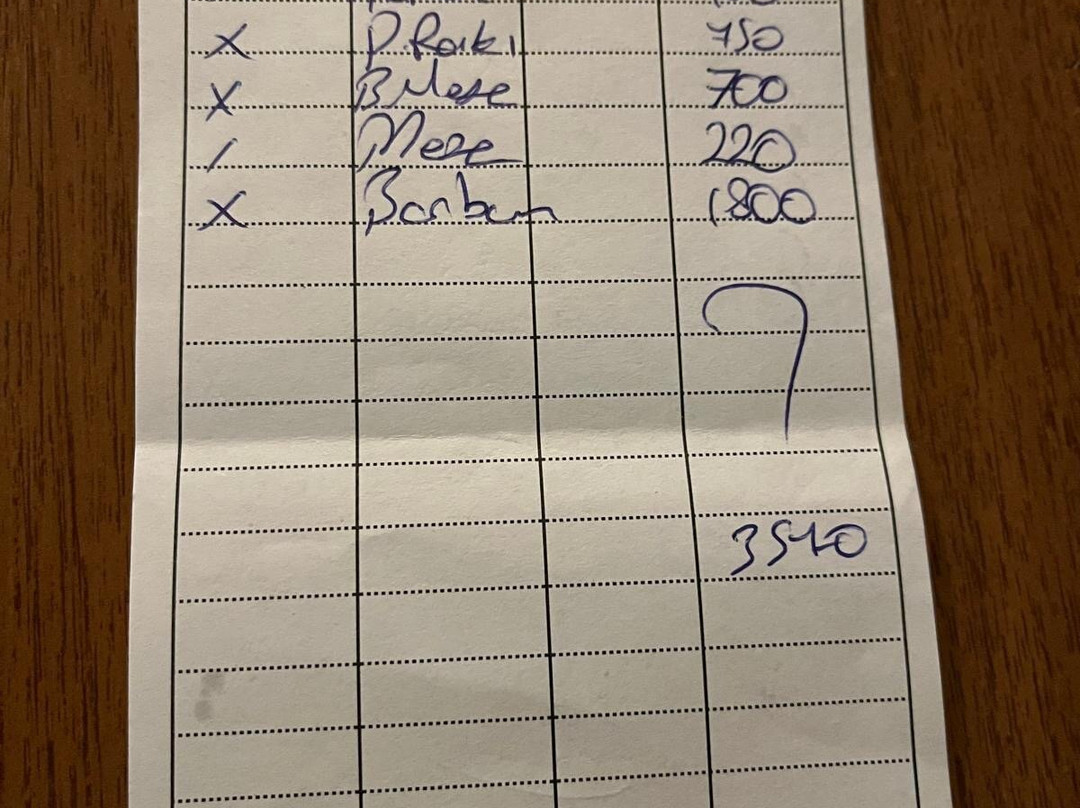 X D Rakı 750
X B Meze 700
/ Meze 220
X Barbun 1800
3540